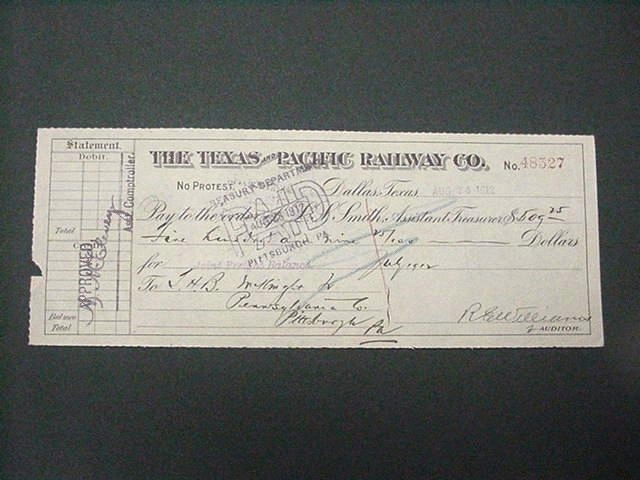 Statement.
Debit.
Total
Balance
Total
APPROVED
Asst. Comptroller.
THE TEXAS AND PACIFIC RAILWAY CO. No. 48327
No Protest. Dallas, Texas AUG 24 1912
TREASURY DEPARTMENT
PAID
PITTSBURGH, PA
Pay to the order of Smith, Assistant Treasurer $509 25
Five Hundred and Nine 25/100 Dollars
for Joint Freight Balance July 1912
To T. H. B. McKnight Tr
Pennsylvania Co.
Pittsburgh Pa
R E Williams
AUDITOR.